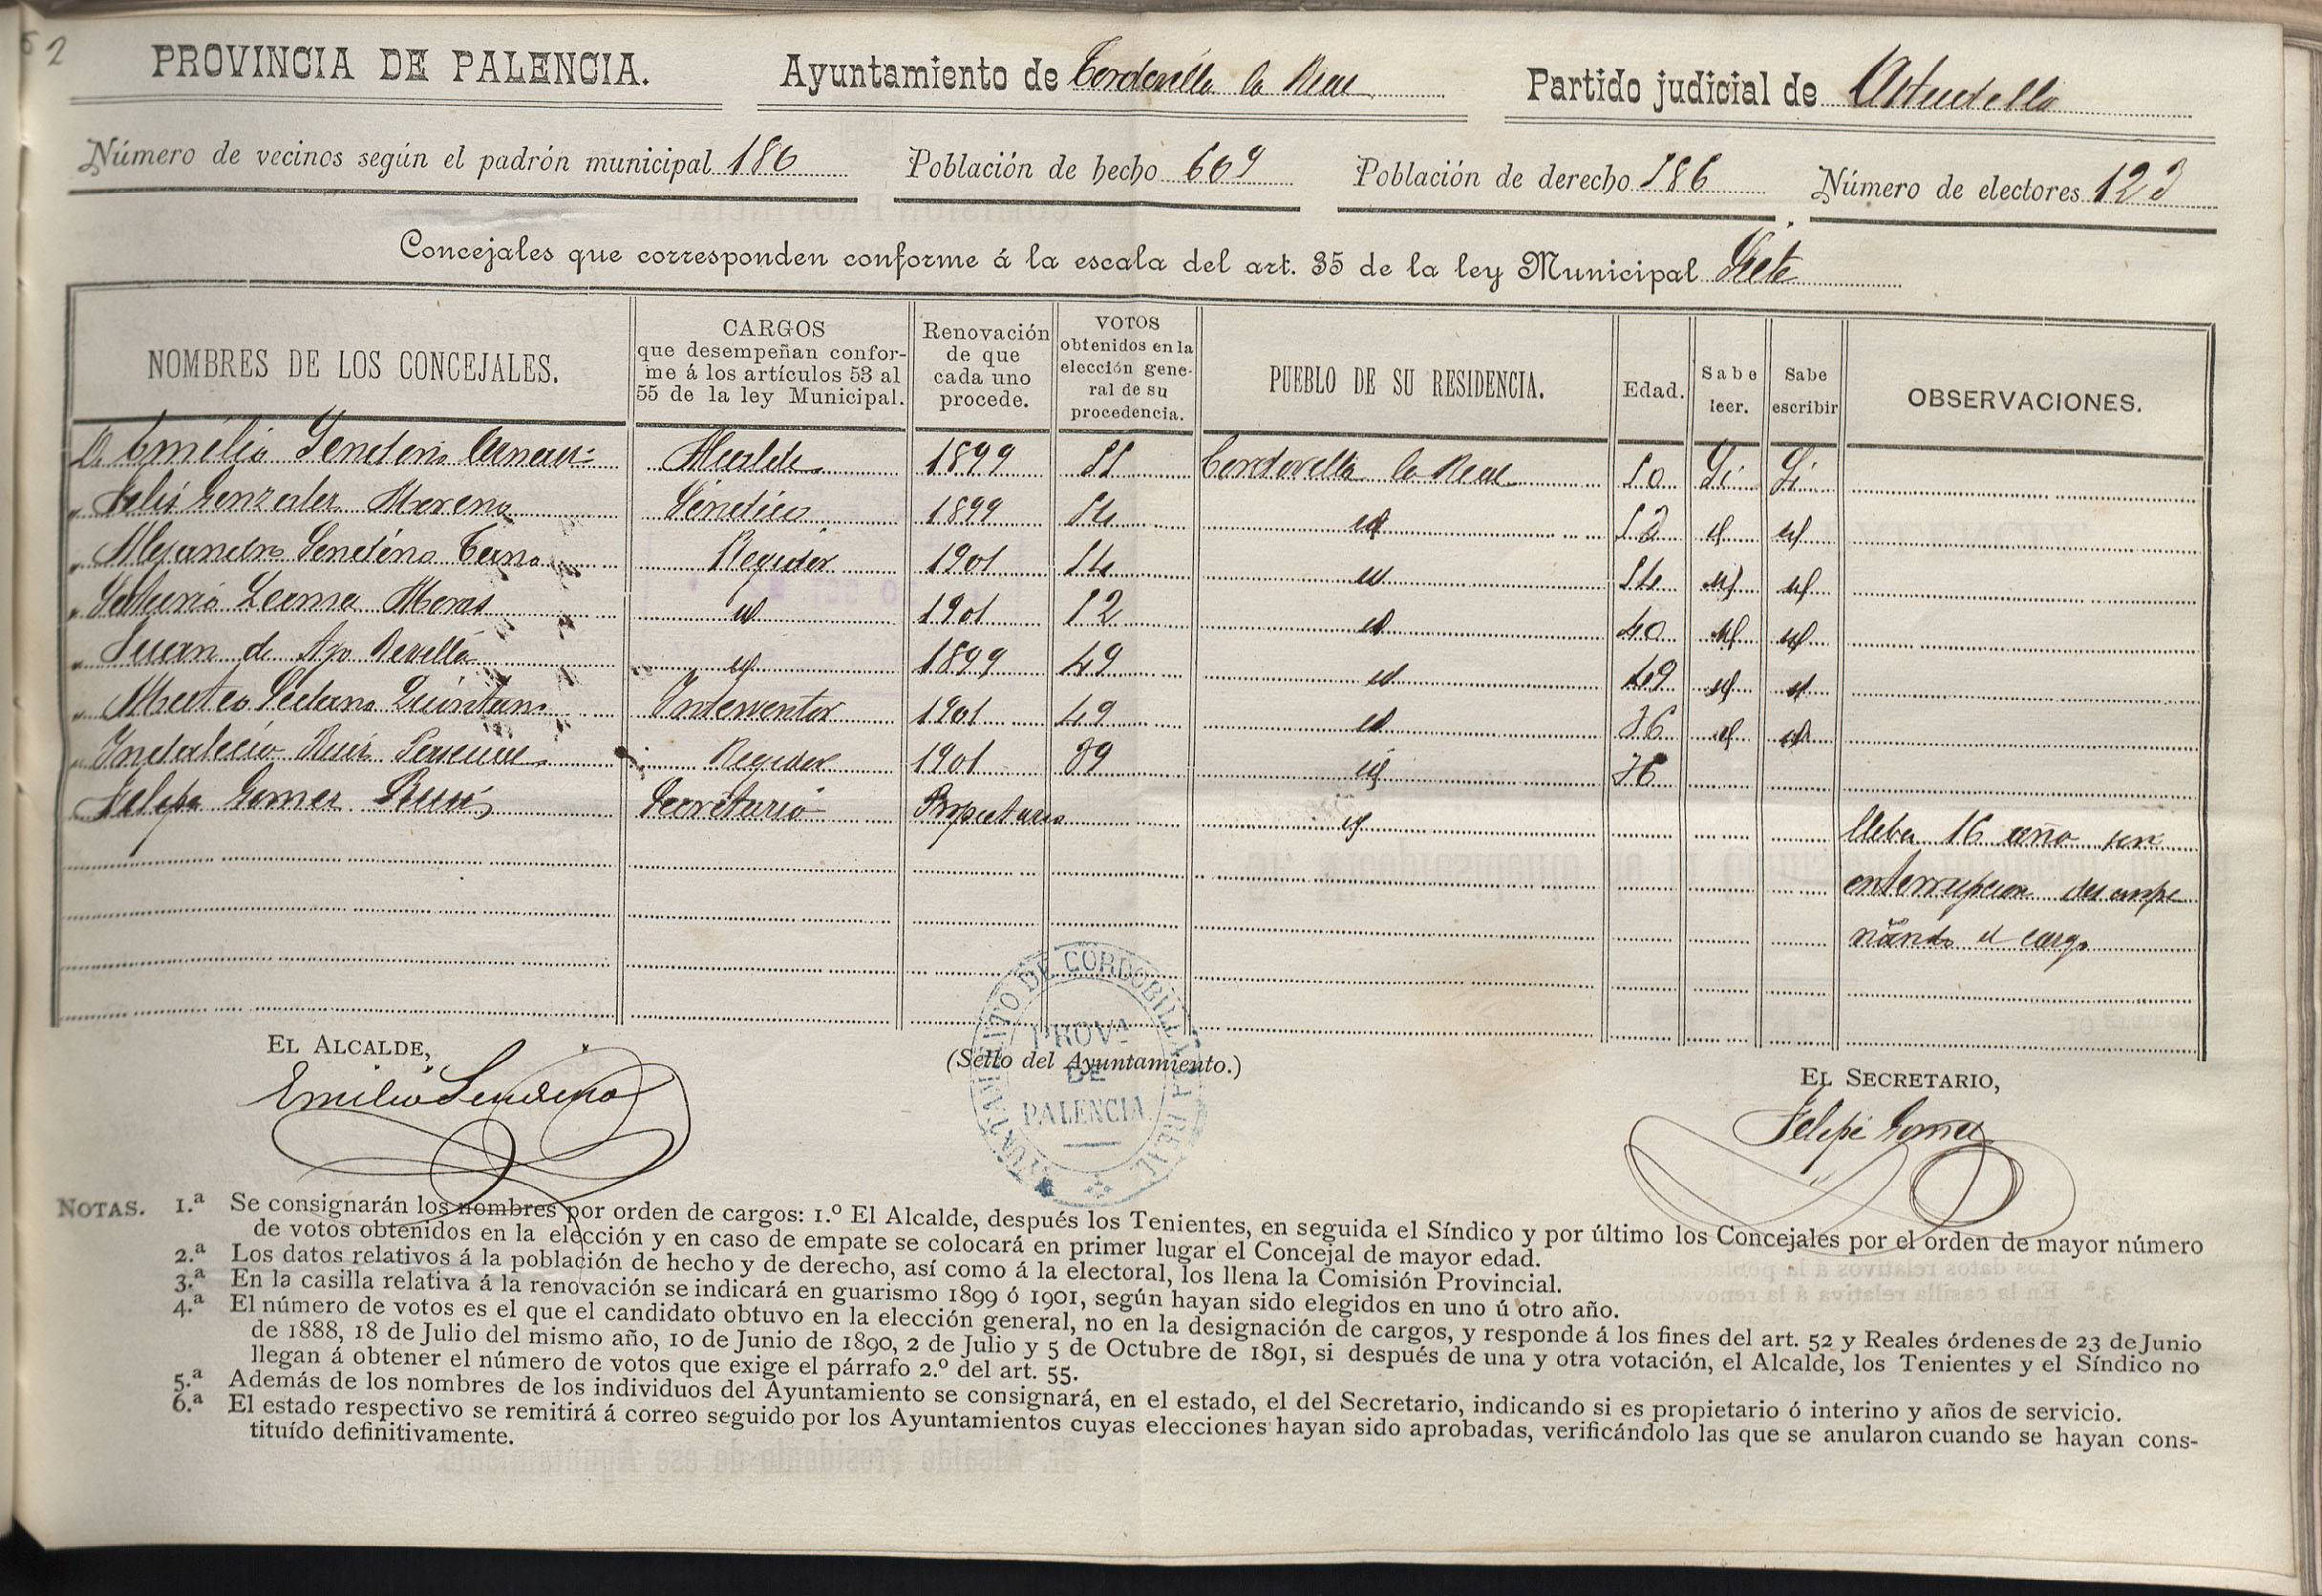 52
PROVINCIA DE PALENCIA. Ayuntamiento de Cordovilla la Real Partido judicial de Astudillo
Número de vecinos según el padrón municipal 186 Población de hecho 609 Población de derecho 586 Número de electores 123
Concejales que corresponden conforme á la escala del art. 35 de la ley Municipal Siete
NOMBRES DE LOS CONCEJALES. CARGOS que desempeñan conforme á los artículos 53 al 55 de la ley Municipal. Renovación de que cada uno procede. VOTOS obtenidos en la elección general de su procedencia. PUEBLO DE SU RESIDENCIA. Edad. Sabe leer. Sabe escribir OBSERVACIONES.
Dn Emilio Sendino Alcalde 1899 55 Cordovilla la Real 50 Si Si
" Felis Gonzalez Moreno Sindico 1899 54 id 52 id id
" Alejandro Sendino Regidor 1901 54 id 54 id id
" Lerma id 1901 52 id 40 id id
" Juan de Azo Revilla id 1899 49 id 49 id id
" Mateo Sedano Quintano Interventor 1901 49 id 36 id id
" Indalecio Ruiz Pascual Regidor 1901 39 id 36
Felipe Gomez Ruiz Secretario Propietario id lleba 16 año sin
enterrupcion desempe
ñando el cargo
EL ALCALDE,
Emilio Sendino
(Sello del Ayuntamiento.)
AYUNTAMIENTO DE CORDOBILLA LA REAL
PROVA
DE
PALENCIA
EL SECRETARIO,
Felipe Gomez
NOTAS. 1.ª Se consignarán los nombres por orden de cargos: 1.º El Alcalde, después los Tenientes, en seguida el Síndico y por último los Concejales por el orden de mayor número
de votos obtenidos en la elección y en caso de empate se colocará en primer lugar el Concejal de mayor edad.
2.ª Los datos relativos á la población de hecho y de derecho, así como á la electoral, los llena la Comisión Provincial.
3.ª En la casilla relativa á la renovación se indicará en guarismo 1899 ó 1901, según hayan sido elegidos en uno ú otro año.
4.ª El número de votos es el que el candidato obtuvo en la elección general, no en la designación de cargos, y responde á los fines del art. 52 y Reales órdenes de 23 de Junio
de 1888, 18 de Julio del mismo año, 10 de Junio de 1890, 2 de Julio y 5 de Octubre de 1891, si después de una y otra votación, el Alcalde, los Tenientes y el Síndico no
llegan á obtener el número de votos que exige el párrafo 2.º del art. 55.
5.ª Además de los nombres de los individuos del Ayuntamiento se consignará, en el estado, el del Secretario, indicando si es propietario ó interino y años de servicio.
6.ª El estado respectivo se remitirá á correo seguido por los Ayuntamientos cuyas elecciones hayan sido aprobadas, verificándolo las que se anularon cuando se hayan cons-
tituído definitivamente.